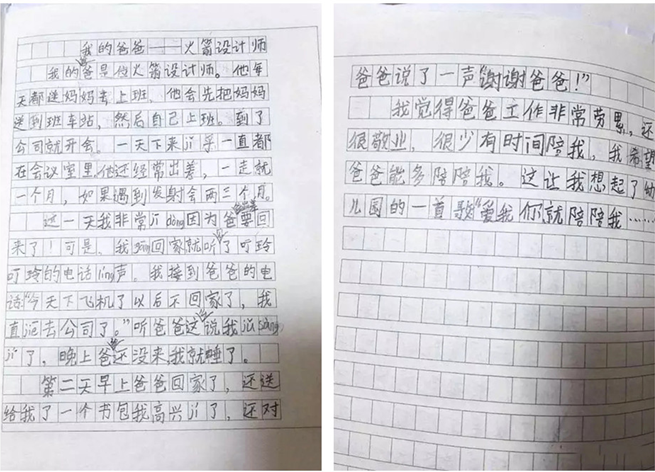 我的爸爸——火箭设计师
我的爸是位火箭设计师。他每
天都送妈妈去上班,他会先把妈妈
送到班车站,然后自己上班。到了
公司就开会。一天下来jī乎一直都
在会议室里他还经常出差,一走就
一个月,如果遇到发射会两三个月。
这一天我非常jī dòng因为爸要回
来了!可是,我gāng回家就听了叮玲
叮玲的电话líng声。我接到爸爸的电
话“今天下飞机了以后不回家了,我
直jiē去公司了。”听爸爸这说我jǔ sàng
jí了,晚上爸还没来我就睡了。
第二天早上爸爸回家了,还送
给我了一个书包我高兴jí了,还对
爸爸说了一声“谢谢爸爸!”
我觉得爸爸工作非常劳累,还
很敬业,很少有时间陪我,我希望
爸爸能多陪陪我。这让我想起了幼
儿园的一首歌“爱我你就陪陪我……